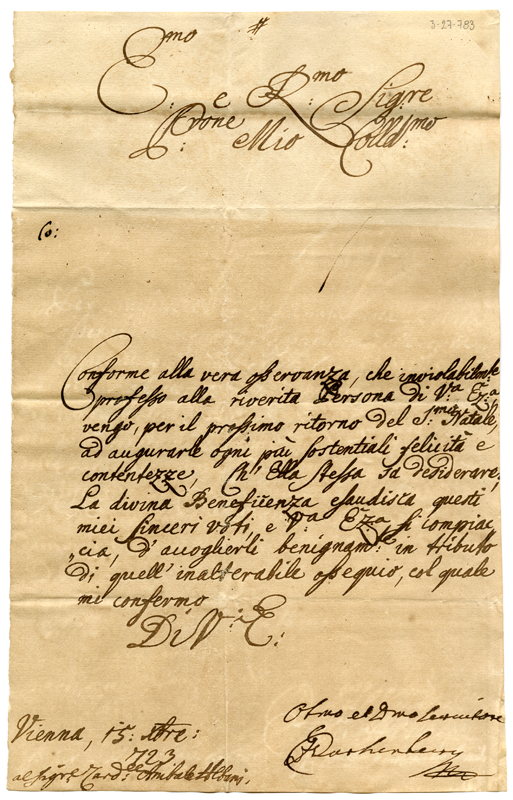 3-27-783
Emo
#
E: e R:mo Sigre
Prone: Mio Colld:mo
Co:
Conforme alla vera osservanza, che inviolabilmte
professo alla riverita Persona di V:ra Ez:a,
vengo, per il prossimo ritorno del S:mo Natale,
ad augurarle ogni più sostentiali felicità e
contentezze, Ch' Ella stessa sa desiderare.
La divina Beneficenza esaudisca questi
miei sinceri voti, e V:ra Ezza si compiac
„cia, d'accoglierli benignam: in tributo
di quell' inalterabile ossequio, col quale
mi confermo
Di V: E:
Vienna, 15: Xbre:
723
al Sigre Card: Anibale Albani.
Obmo et Dmo Servitore